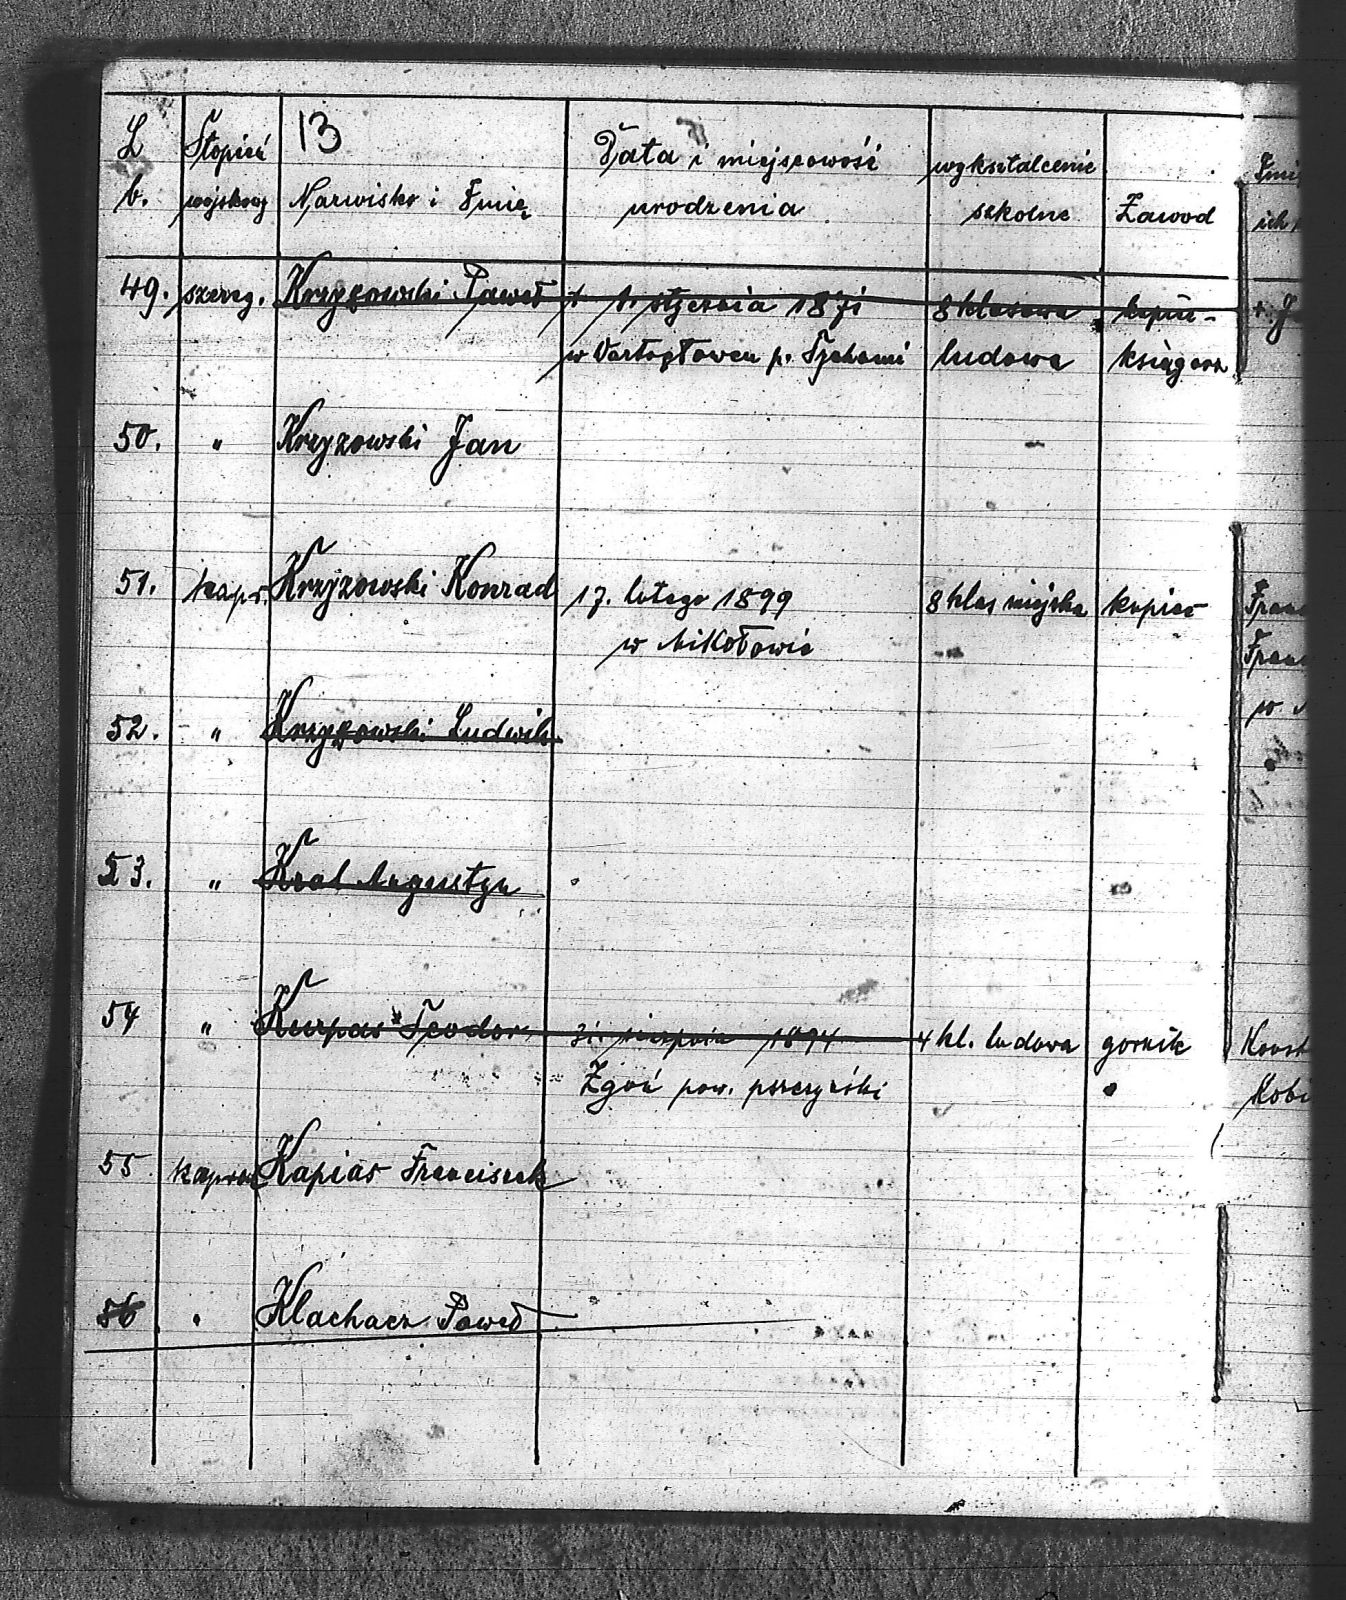 13
L b. Stopień wojskowy Nazwisko i Imię Data i miejscowość urodzenia wykształcenie szkolne Zawód
49. szereg. Krzyżowski Paweł 1. stycznia 1871 8 klasowa kupiec-
w Wartogłowcu p. Tychami ludowa księgarz
50. " Krzyżowski Jan
51. kapr. Krzyżowski Konrad 17. lutego 1899 8 klas miejska kupiec
w Mikołowie
52. " Krzyżowski Ludwik
53. " Kral Augustyn
54 " Kurpas Teodor 31. sierpnia 1894 4 kl. ludowa gornik
Zgoń pow. pszczyński
55 kapral Kapias Franciszek
56 " Klachacz Paweł